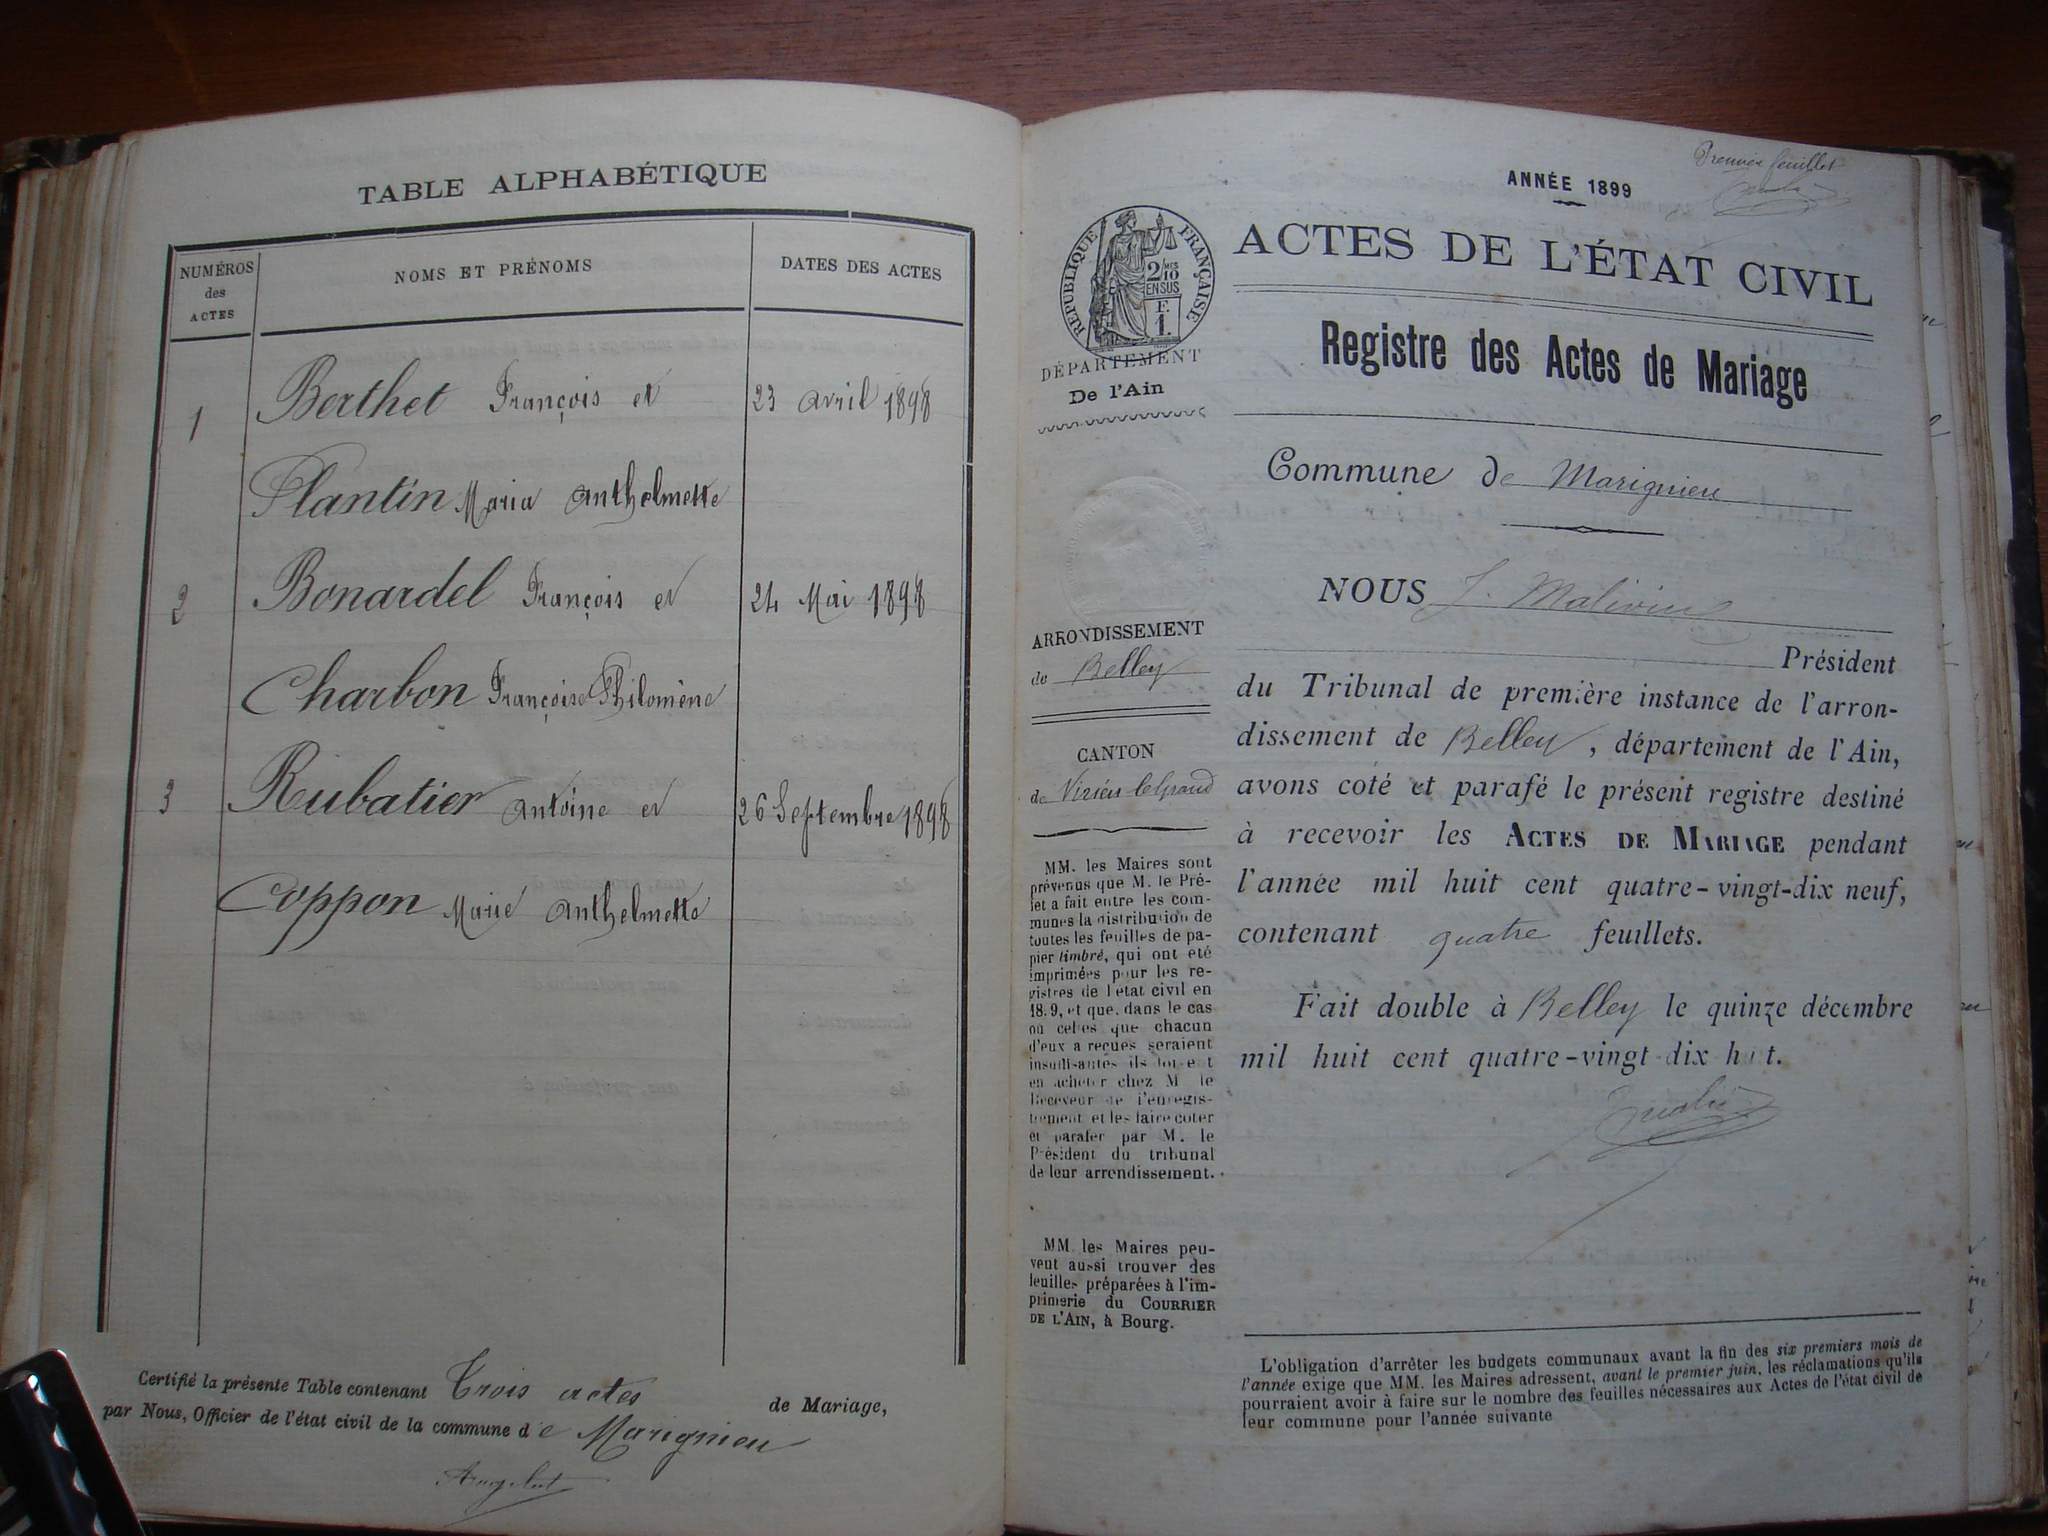 TABLE ALPHABÉTIQUE
NUMÉROS des ACTES
NOMS ET PRÉNOMS
DATES DES ACTES
1 Berthet François et 23 avril 1898
Plantin Maria Anthelmette
2 Bonardel François et 24 Mai 1898
Charbon Françoise Philomène
3 Rubatier Antoine et 26 Septembre 1898
Coppon Marie Anthelmette
Certifié la présente Table contenant Trois actes de Mariage,
par Nous, Officier de l'état civil de la commune de Marignieu
Premier feuillet
ANNÉE 1899
RÉPUBLIQUE FRANÇAISE
2/10 MES
EN SUS
F.
1.
ACTES DE L'ÉTAT CIVIL
Registre des Actes de Mariage
DÉPARTEMENT
De l'Ain
Commune de Marignieu
NOUS J. 
Président
du Tribunal de première instance de l'arron-
dissement de Belley, département de l'Ain,
avons coté et parafé le présent registre destiné
à recevoir les ACTES DE MARIAGE pendant
l'année mil huit cent quatre-vingt-dix neuf,
contenant quatre feuillets.
Fait double à Belley le quinze décembre
mil huit cent quatre-vingt dix h it.
ARRONDISSEMENT
de Belley
CANTON
de Virieu le Grand
MM. les Maires sont
prévenus que M. le Pré-
fet a fait entre les com-
munes la distribution de
toutes les feuilles de pa-
pier timbré, qui ont été
imprimées pour les re-
gistres de l'état civil en
18.9, et que, dans le cas
où celles que chacun
d'eux a reçues seraient
insuffisantes ils
en acheter chez M le
Receveur de l'enregis-
trement et les faire coter
et parafer par M. le
Président du tribunal
de leur arrondissement.
MM. les Maires peu-
vent aussi trouver des
feuilles préparées à l'im-
primerie du COURRIER
DE L'AIN, à Bourg.
L'obligation d'arrêter les budgets communaux avant la fin des six premiers mois de
l'année exige que MM. les Maires adressent, avant le premier juin, les réclamations qu'ils
pourraient avoir à faire sur le nombre des feuilles nécessaires aux Actes de l'état civil de
leur commune pour l'année suivante